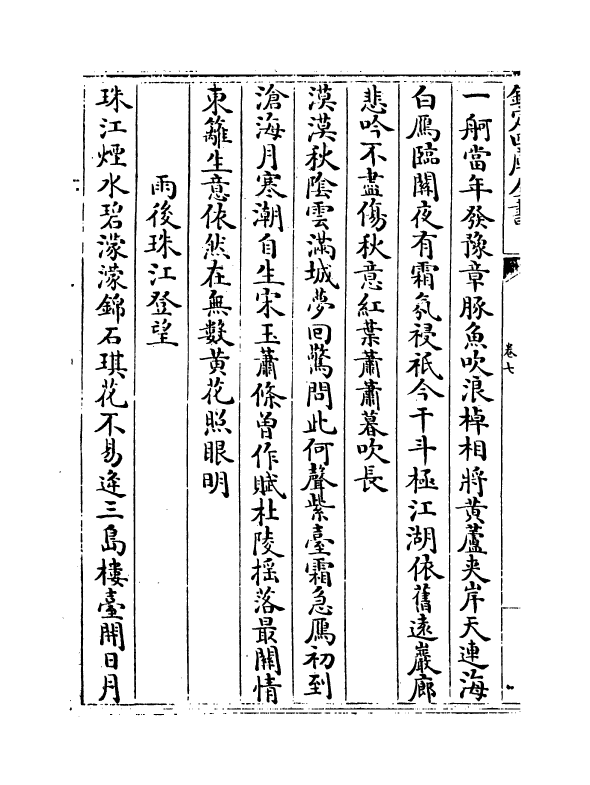 欽定四庫全書
卷七
一舸當年發豫章豚魚吹浪棹相將黃蘆夾岸天連海
白鴈臨關夜有霜氛祲祇今干斗極江湖依舊遠巖廊
悲吟不盡傷秋意紅葉蕭蕭暮吹長
漠漠秋陰雲滿城夢回驚問此何聲紫臺霜急鴈初到
滄海月寒潮自生宋玉蕭條曾作賦杜陵揺落最關情
東籬生意依然在無數黃花照眼明
雨後珠江登望
珠江煙水碧濛濛錦石琪花不易逢三島樓臺開日月